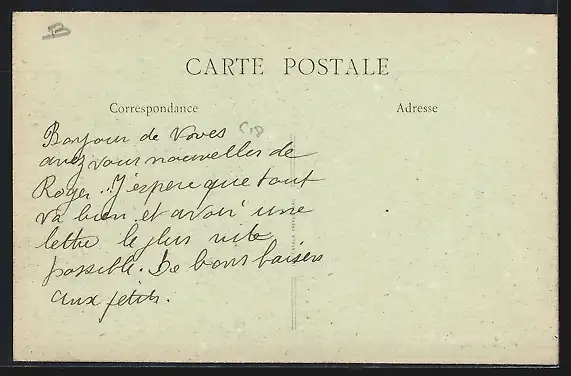 B
CARTE POSTALE
Correspondance
Adresse
C18
Bonjour de Voves
avez vous nouvelles de
Roger. J'espere que tout
va bien et avoir une
lettre le plus vite
possible. De bons baisers
aux petits.